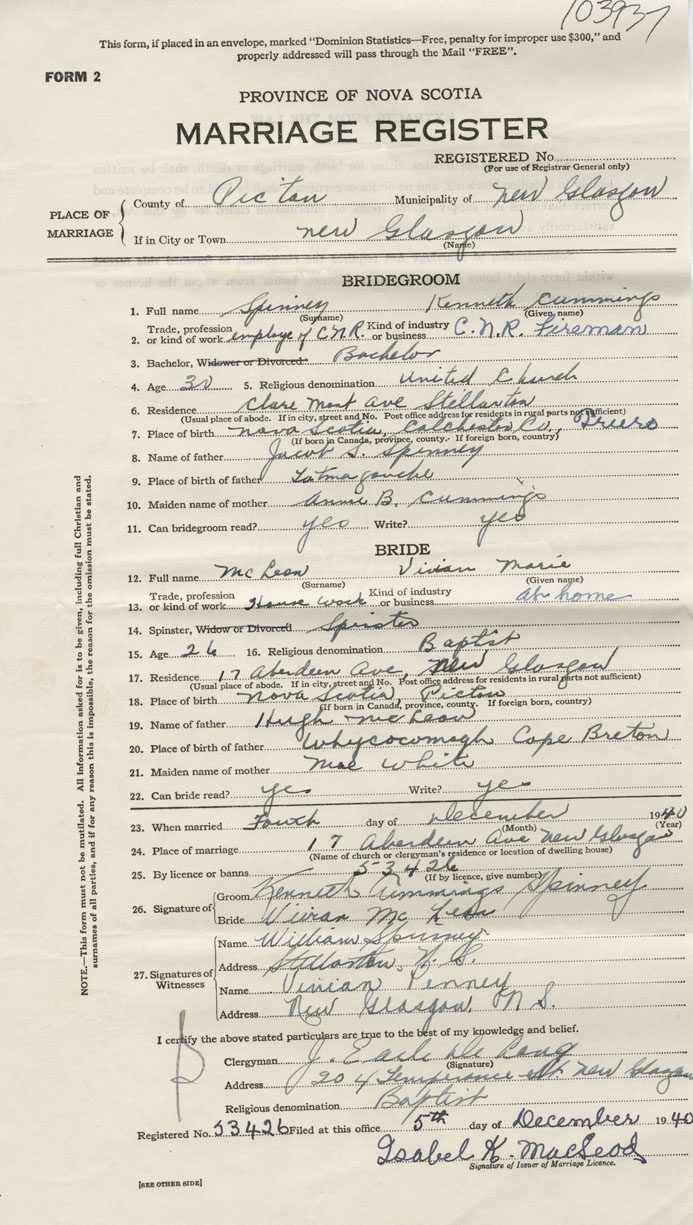 103937
This form, if placed in an envelope, marked "Dominion Statistics—Free, penalty for improper use $300," and
properly addressed will pass through the Mail "FREE".
FORM 2
PROVINCE OF NOVA SCOTIA
MARRIAGE REGISTER
REGISTERED No.
(For use of Registrar General only)
PLACE OF MARRIAGE
County of Pictou Municipality of New Glasgow
If in City or Town New Glasgow
(Name)
BRIDEGROOM
1. Full name Spinney Kenneth Cummings
(Surname) (Given name)
2. Trade, profession or kind of work employe of CNR Kind of industry or business C.N.R. Fireman
3. Bachelor, Widower or Divorced Bachelor
4. Age 30 5. Religious denomination United Church
6. Residence Clare Mont Ave Stellarton
(Usual place of abode. If in city, street and No. Post office address for residents in rural parts not sufficient)
7. Place of birth Nova Scotia, Colchester Co., Truro
(If born in Canada, province, county. If foreign born, country)
8. Name of father Jacob S. Spinney
9. Place of birth of father Tatmagouche
10. Maiden name of mother Annie B. Cummings
11. Can bridegroom read? yes Write? yes
BRIDE
12. Full name McLeon Vivian Marie
(Surname) (Given name)
13. Trade, profession or kind of work House work Kind of industry or business At home
14. Spinster, Widow or Divorced Spinster
15. Age 26 16. Religious denomination Baptist
17. Residence 17 Aberdeen Ave, New Glasgow
(Usual place of abode. If in city, street and No. Post office address for residents in rural parts not sufficient)
18. Place of birth Nova Scotia, Pictou
(If born in Canada, province, county. If foreign born, country)
19. Name of father Hugh McLeon
20. Place of birth of father Whycocomagh Cape Breton
21. Maiden name of mother Mae White
22. Can bride read? yes Write? yes
23. When married Fourth day of December 1940
(Month) (Year)
24. Place of marriage 17 Aberdeen Ave New Glasgow
(Name of church or clergyman's residence or location of dwelling house)
25. By licence or banns 53426
(If by licence, give number)
26. Signature of
Groom Kenneth Cummings Spinney
Bride Vivian McLeon
27. Signatures of Witnesses
Name William Spinney
Address Stellarton, N.S.
Name Vivian Penney
Address New Glasgow, N.S.
I certify the above stated particulars are true to the best of my knowledge and belief.
Clergyman J. Earle De Long
(Signature)
Address 204 Temperance St New Glasgow
Religious denomination Baptist
Registered No. 53426 Filed at this office 5th day of December 1940
Isabel K. MacLeod
Signature of Issuer of Marriage Licence.
[SEE OTHER SIDE]
NOTE.—This form must not be mutilated. All information asked for is to be given, including full Christian and
surnames of all parties, and if for any reason this is impossible, the reason for the omission must be stated.